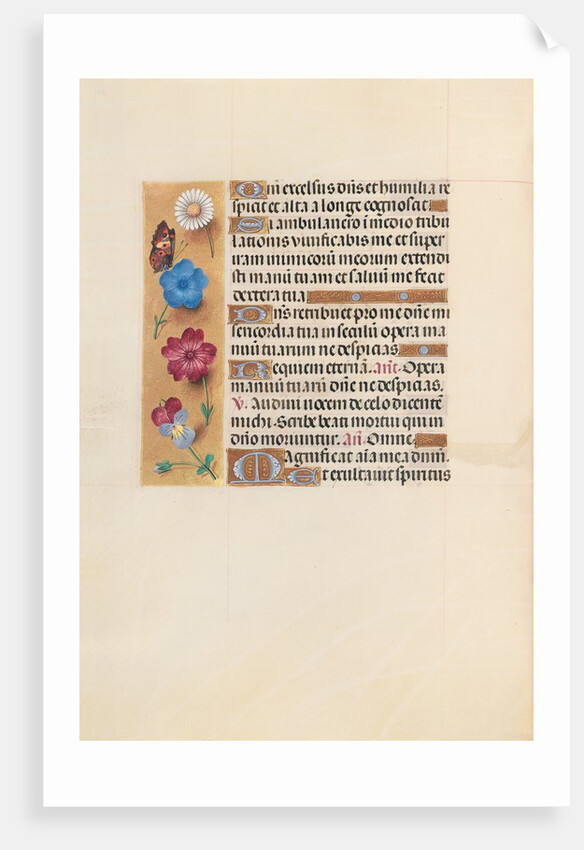 Qm̄ excelsus dn̄s et humilia re
spicit et alta a longe cognoscit
Si ambulauero ī medio tribu
lationis viuificabis me et super
iram inimicorū meorum extendi
sti manū tuam et saluū me fecit
dextera tua
Dn̄s retribuet pro me dn̄e mi
sericordia tua in seculū opera ma
nuū tuarum ne despicias
Requiem eternā. Ant̄. Opera
manuū tuarū dn̄e ne despicias.
V. Audiui vocem de celo dicentē
michi. Scribe beati mortui qui in
dn̄o moriuntur. An̄. Omne
Magnificat aīa mea dn̄m.
Et exultauit spiritus